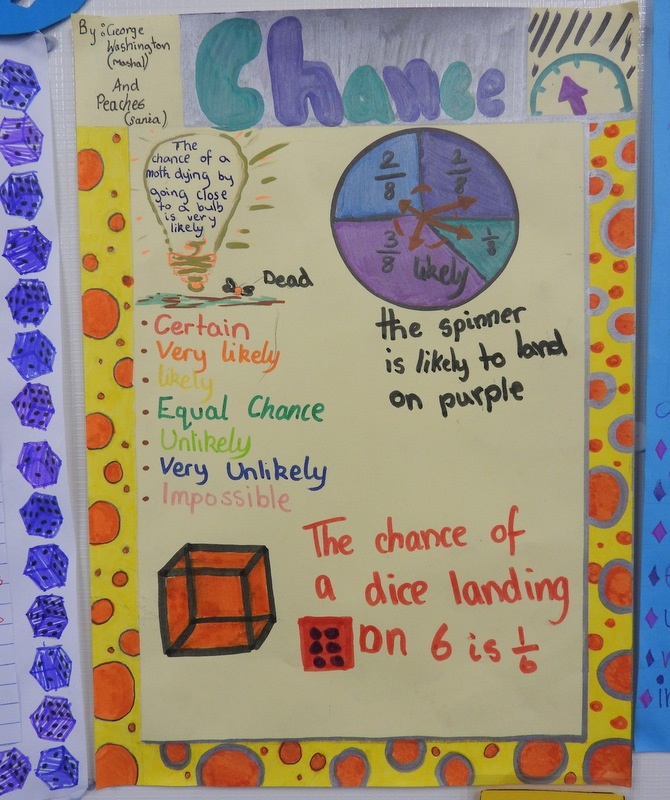 By: George
Washington
(mashal)
And
Peaches
(sania)
Chance
The
chance of a
moth dying by
going close
to a bulb
is very
likely
Dead
2/8
2/8
1/8
3/8
likely
the spinner
is likely to land
on purple
• Certain
• Very likely
• likely
• Equal Chance
• Unlikely
• Very Unlikely
• Impossible
The chance of
a dice landing
on 6 is 1/6